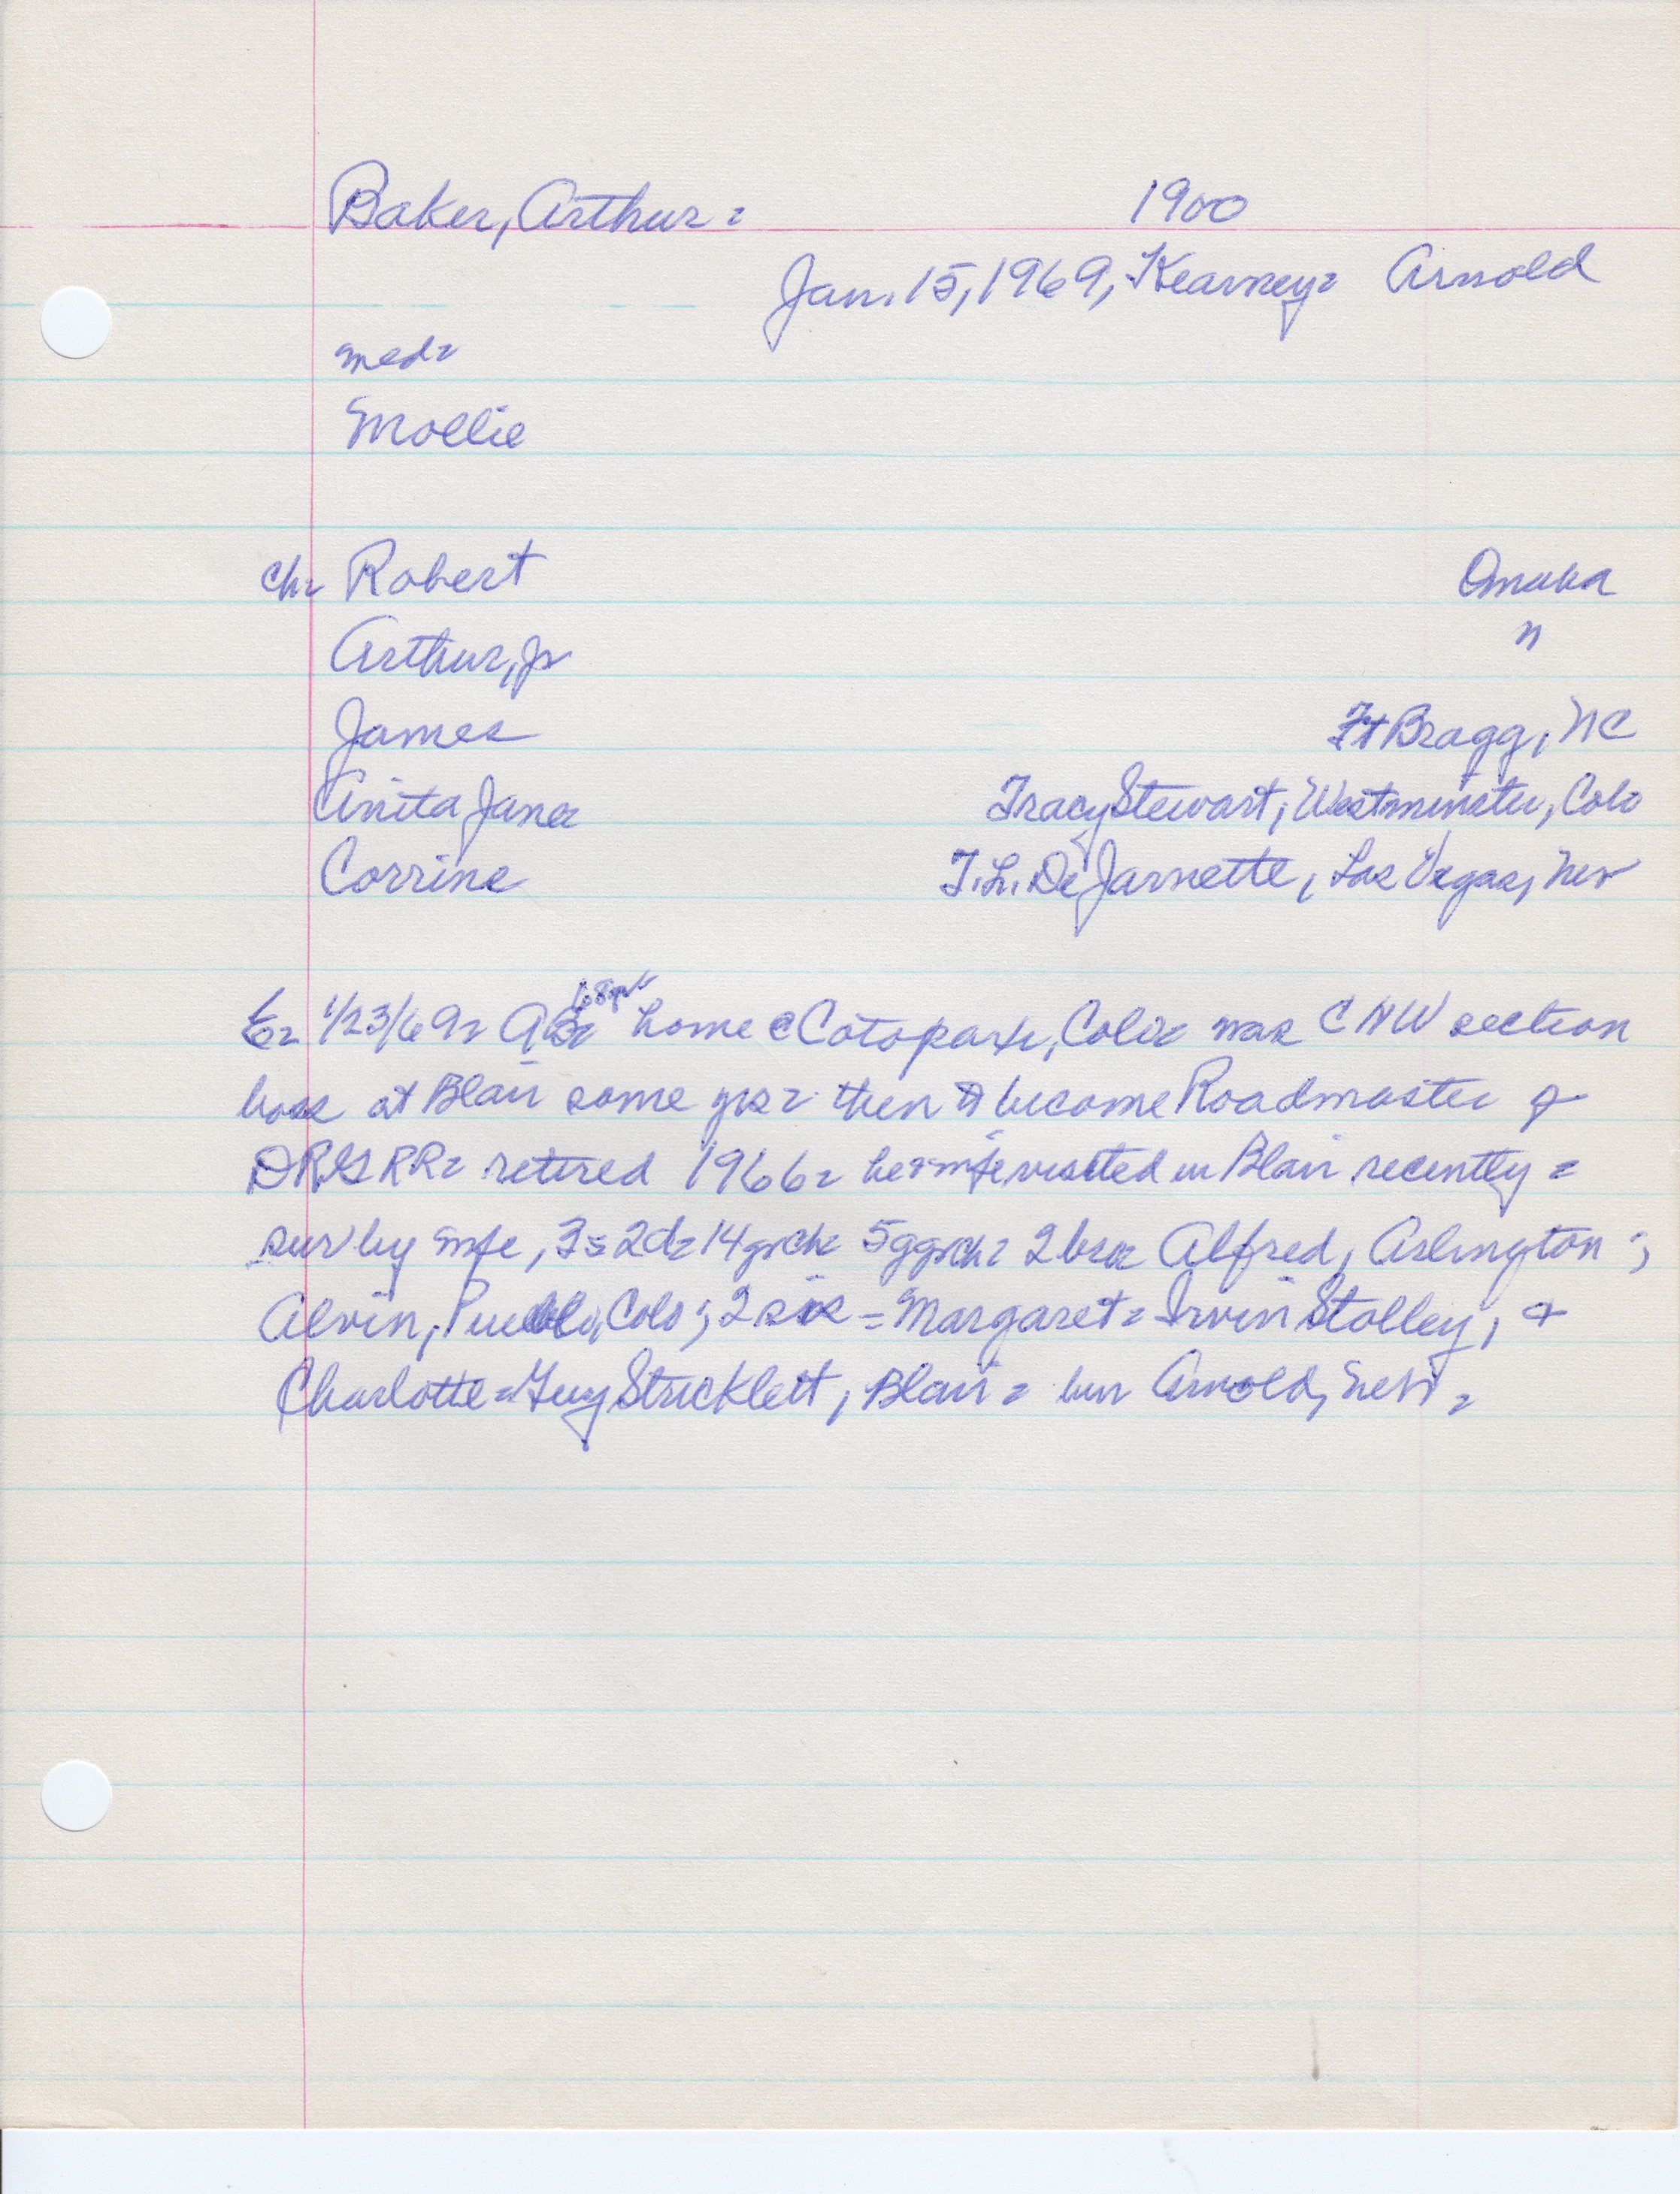 Baker, Arthur = 1900
Jan. 15, 1969, Kearney = Arnold
med =
Mollie
ch = Robert Omaha
Arthur, Jr "
James Ft Bragg, NC
Anita Jane = Tracy Stewart, Westminster, Colo
Corrine T. L. De Jarnette, Las Vegas, Nev
E = 1/23/69 = AB = 68 yrs home @ Cotopaxi, Colo = was CNW section
boss at Blair some yrs = then become Roadmaster of
DRG RR = retired 1966 = he + wife visited in Blair recently =
sur by wife, 3s = 2d = 14 grch = 5 ggrch = 2 bro = Alfred, Arlington ;
Alvin, Pueblo, Colo ; 2 sis = Margaret = Irvin Stolley, +
Charlotte = Guy Stricklett, Blair = bur Arnold, Neb =